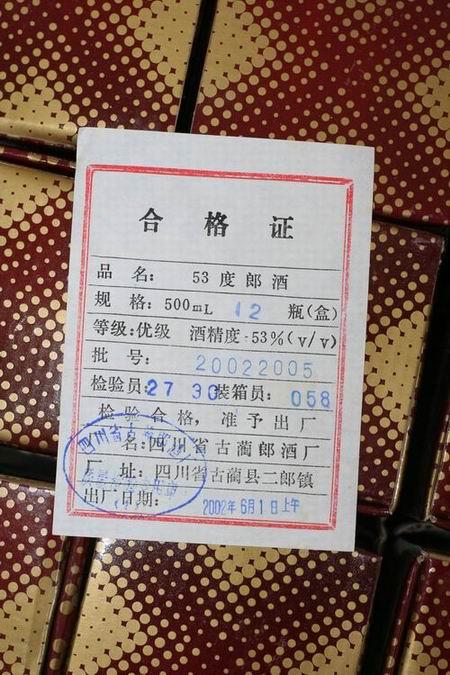 合格证
品名: 53度郎酒
规格: 500mL 12 瓶(盒)
等级:优级 酒精度:53%(v/v)
批号: 20022005
检验员:27 30 装箱员: 058
检验合格,准予出厂
厂名:四川省古蔺郎酒厂
厂址:四川省古蔺县二郎镇
出厂日期: 2002年6月1日上午
四川省古蔺